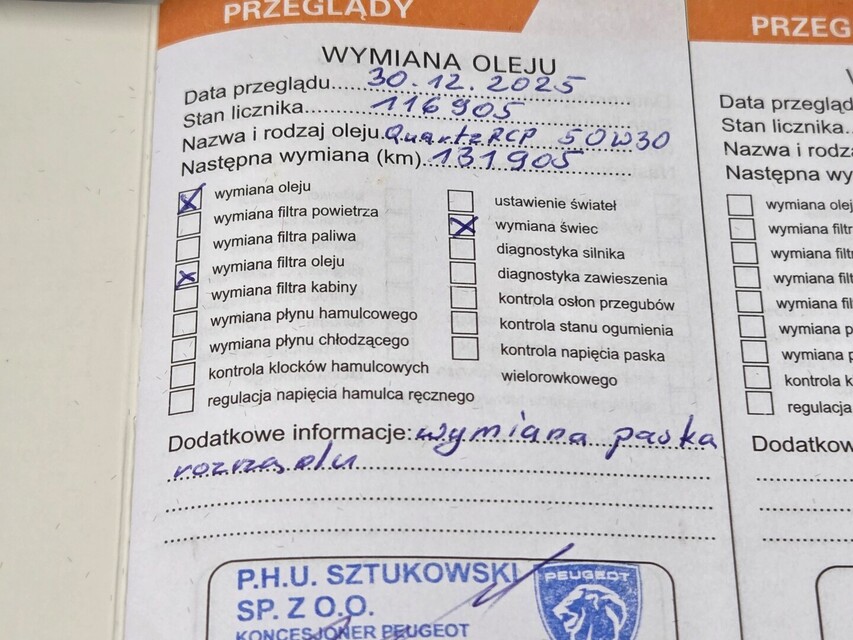 PRZEGLĄDY
WYMIANA OLEJU
Data przeglądu 30.12.2025
Stan licznika 116905
Nazwa i rodzaj oleju Quartz RCP 50W30
Następna wymiana (km) 131905
wymiana oleju
wymiana filtra powietrza
wymiana filtra paliwa
wymiana filtra oleju
wymiana filtra kabiny
wymiana płynu hamulcowego
wymiana płynu chłodzącego
kontrola klocków hamulcowych
regulacja napięcia hamulca ręcznego
ustawienie świateł
wymiana świec
diagnostyka silnika
diagnostyka zawieszenia
kontrola osłon przegubów
kontrola stanu ogumienia
kontrola napięcia paska
wielorowkowego
Dodatkowe informacje: wymiana paska
rozrządu
P.H.U. SZTUKOWSKI
SP. Z O.O.
KONCESJONER PEUGEOT
PEUGEOT
PRZEG
Data przegląd
Stan licznika
Nazwa i rodza
Następna wy
wymiana olej
wymiana filtr
wymiana filtr
wymiana filt
wymiana filt
wymiana p
wymiana p
kontrola k
regulacja
Dodatkow